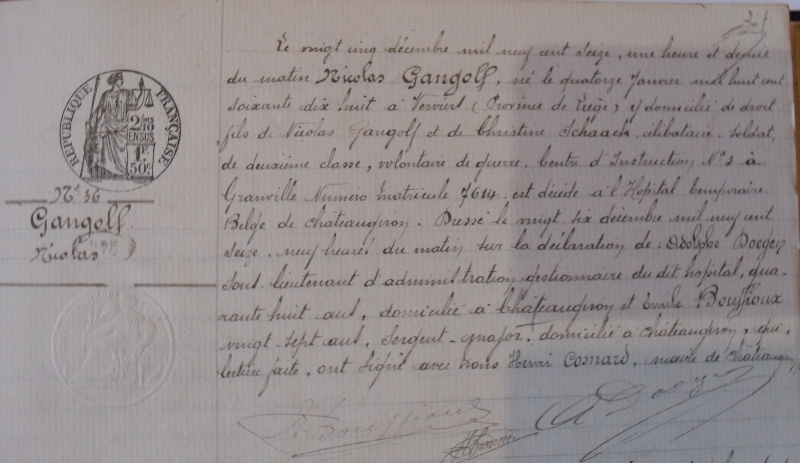 Le vingt cinq décembre mil neuf cent seize, une heure et demie
du matin Nicolas Gangolf, né le quatorze Janvier mil huit cent
soixante dix huit à Verviers (Province de Liège) y domicilié de droit
fils de Nicolas Gangolf et de Christine Schaack, célibataire. soldat
de deuxième classe, volontaire de guerre. Centre d'Instruction N° 3 à
Granville Numéro matricule 7614. est décédé à l'Hopital temporaire
Belge de Châteaugiron. Dressé le vingt six décembre mil neuf cent
seize. neuf heures du matin sur la déclaration de : Adolphe Doeger
sous-lieutenant d'administration gestionnaire du dit hopital, qua-
rante huit ans, domicilié à Châteaugiron et Emile Bouffioux
vingt-sept ans, sergent-major. domicilié à châteaugiron, qui,
lecture faite, ont signé avec nous Henri Cosnard, maire de Châteaugiron
RÉPUBLIQUE FRANÇAISE
2/10mes
EN SUS
1F
50c
N° 36
Gangolf
Nicolas